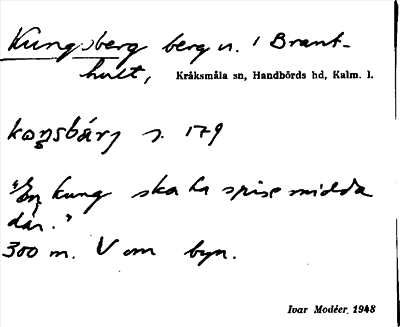 Kungsberg berg n. i Brant-
hult, Kråksmåla sn, Handbörds hd, Kalm. l.
koŋsbárj s. 179
"En kung ska ha spist midda
där."
300 m. V om byn.
Ivar Modéer 1948